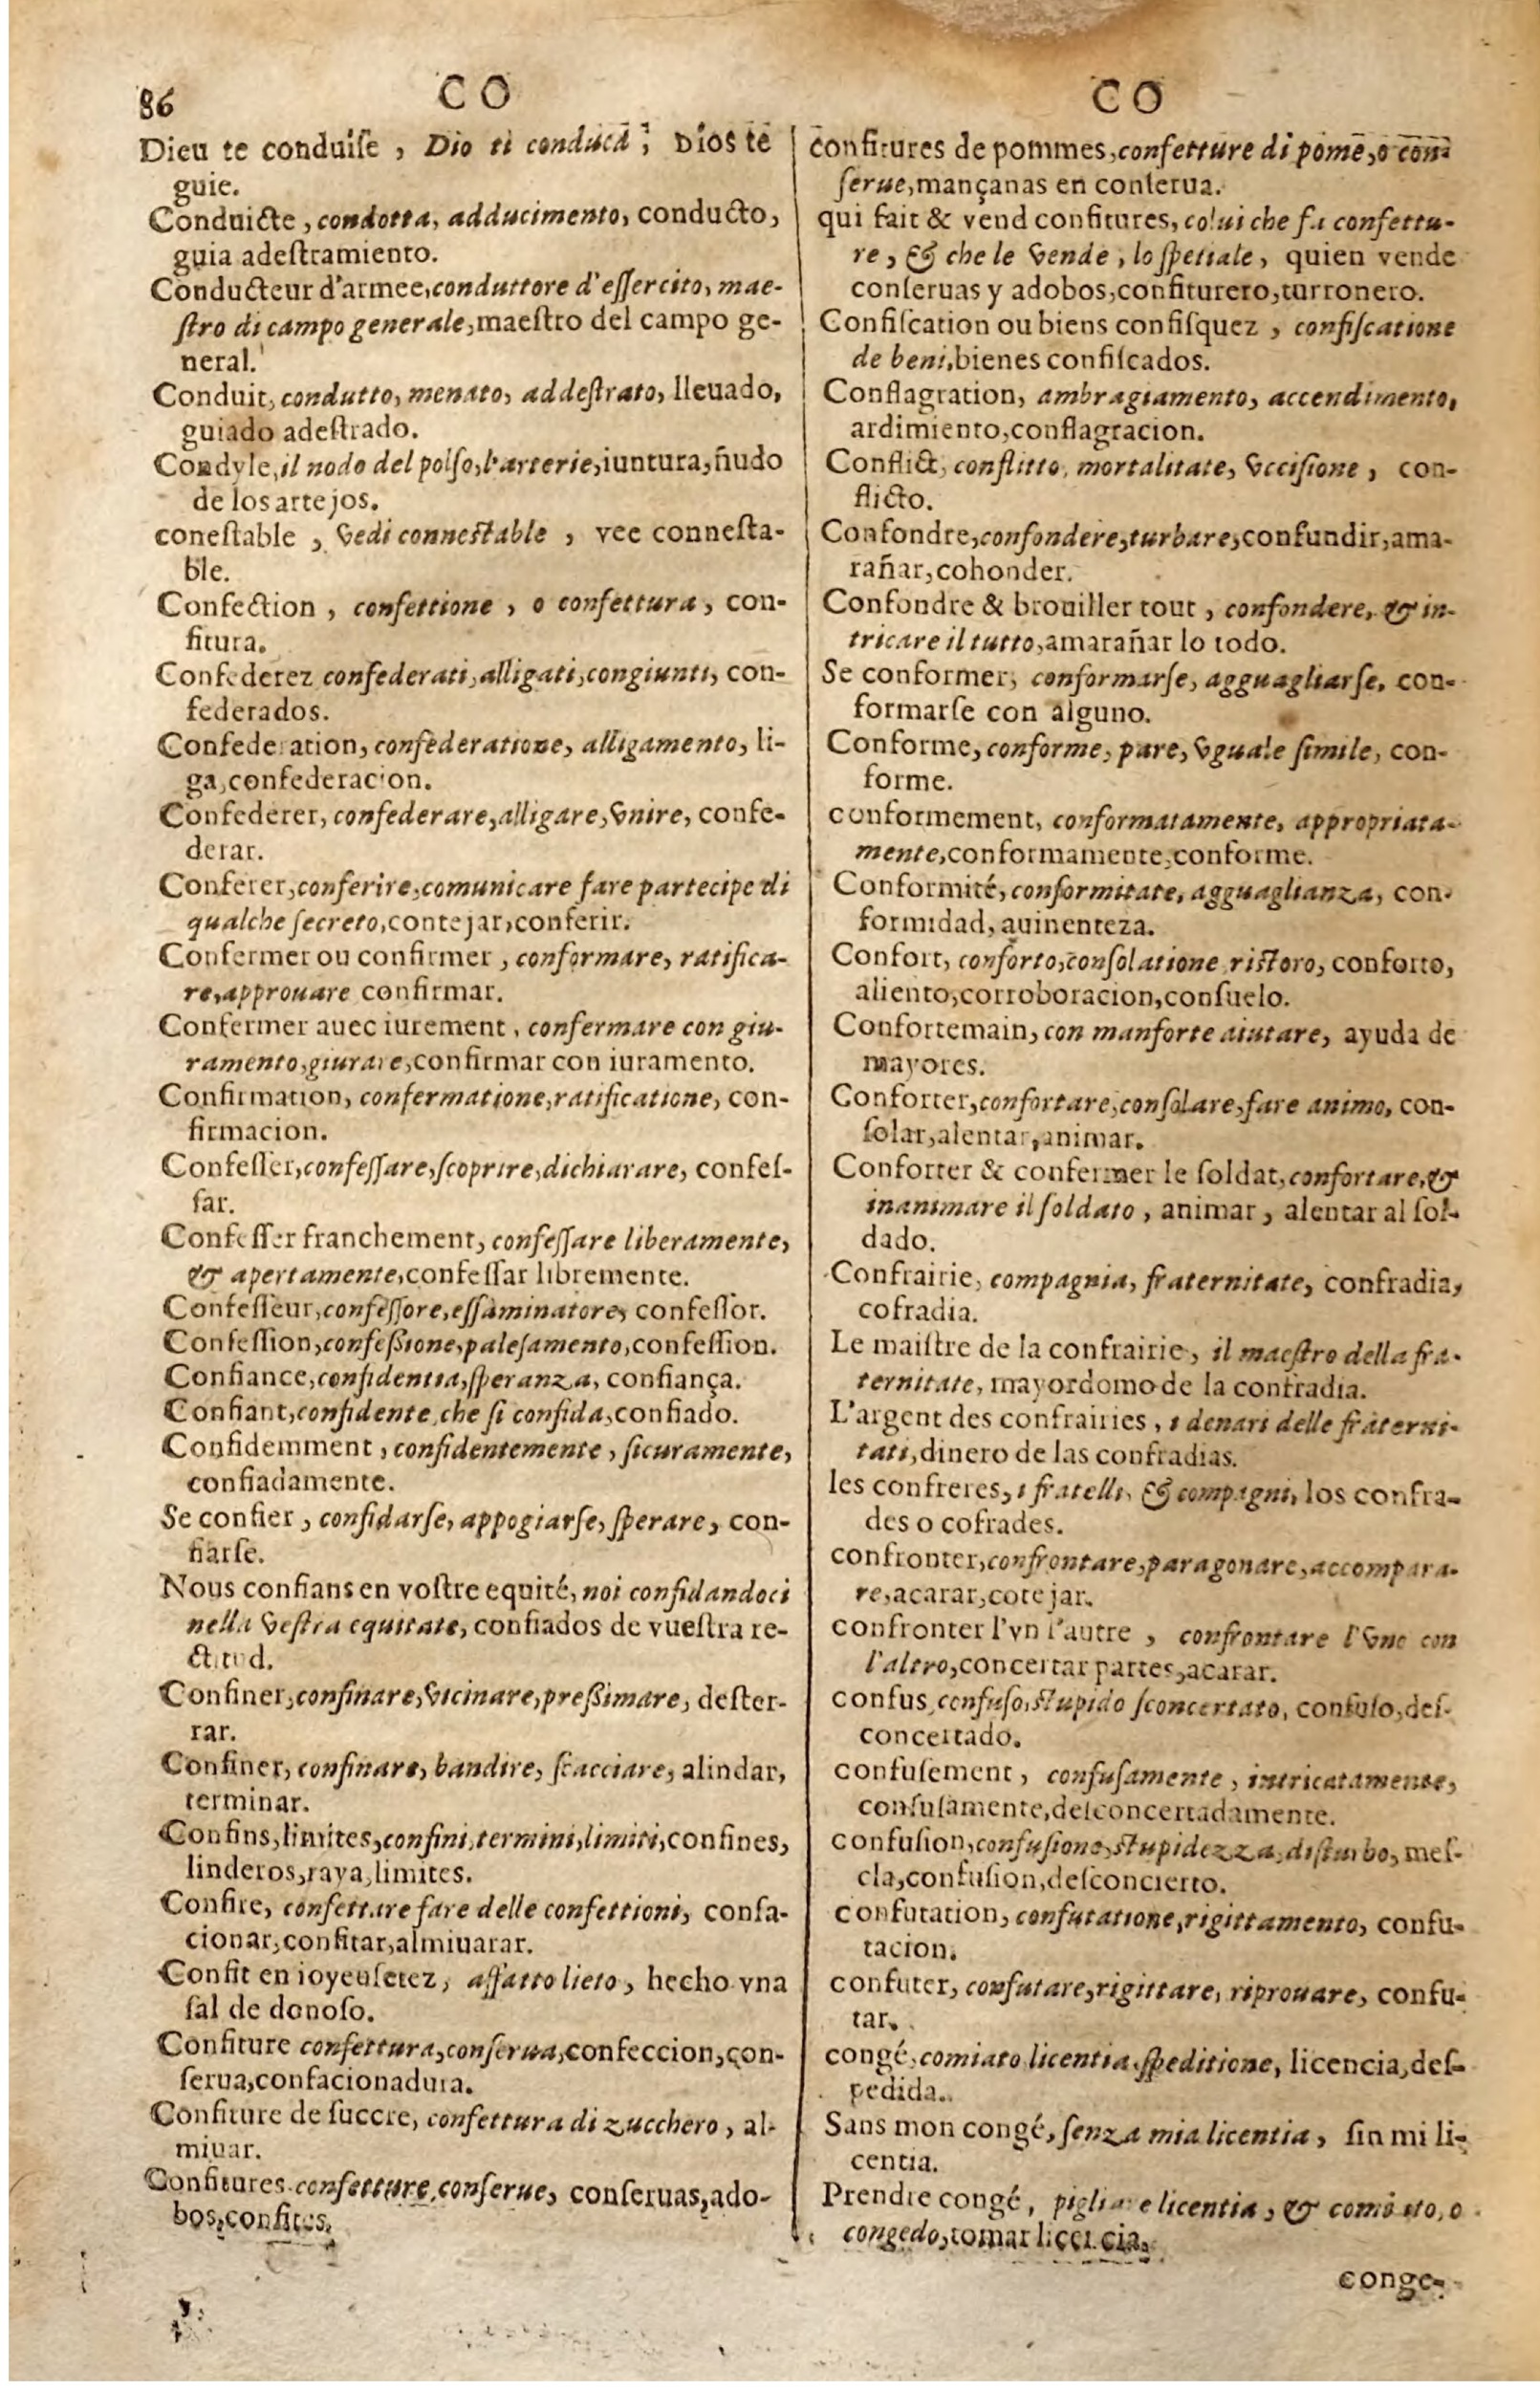 86
CO
CO
Dieu te conduiſe, Dio ti conducá, Dios te
guie.
Conduicte, condotta, adducimento, conducto,
guia adeſtramiento.
Conducteur d'armee, conduttore d'eſſercito, mae-
ſtro di campo generale, maeſtro del campo ge-
neral.
Conduit, condutto, menato, addeſtrato, lleuado,
guiado adeſtrado.
Condyle, il nodo del polſo, l'arterie, iuntura, ñudo
de los artejos.
coneſtable, vedi conneſtable, vee conneſta-
ble.
Confection, confettione, o confettura, con-
fitura.
Confederez confederati, alligati, congiunti, con-
federados.
Confederation, confederatione, alligamento, li-
ga, confederacion.
Confederer, confederare, alligare, vnire, confe-
derar.
Conferer, conferire, comunicare fare partecipe di
qualche ſecreto, contejar, conferir.
Confermer ou confirmer, conformare, ratifica-
re, approuare confirmar.
Confermer auec iurement, confermare con giu-
ramento, giurare, confirmar con iuramento.
Confirmation, confermatione, ratificatione, con-
firmacion.
Confeſſer, confeſſare, ſcoprire, dichiarare, confeſ-
ſar.
Confeſſer franchement, confeſſare liberamente,
& apertamente, confeſſar libremente.
Confeſſeur, confeſſore, eſſaminatore, confeſſor.
Confeſſion, confeßione, paleſamento, confeſſion.
Confiance, confidentia, ſperanza, confiança.
Confiant, confidente, che ſi confida, confiado.
Confidemment, confidentemente, ſicuramente,
confiadamente.
Se confier, confidarſe, appogiarſe, ſperare, con-
fiarſe.
Nous confians en voſtre equité, noi confidandoci
nella veſtra equitate, confiados de vueſtra re-
ctitud.
Confiner, confinare, vicinare, preßimare, deſter-
rar.
Confiner, confinare, bandire, ſcacciare, alindar,
terminar.
Confins, limites, confini, termini, limiti, confines,
linderos, raya, limites.
Confire, confettare fare delle confettioni, confa-
cionar, confitar, almiuarar.
Confit en ioyeuſetez, affatto lieto, hecho vna
ſal de donoſo.
Confiture confettura, conſerua, confeccion, con-
ſerua, confacionadura.
Confiture de ſuccre, confettura di zucchero, al-
miuar.
Confitures confetture, conſerue, conſeruas, ado-
bos, confites.
confitures de pommes, confetture di pome, o con-
ſerue, mançanas en conſerua.
qui fait & vend confitures, colui che fa confettu-
re, & che le vende, lo ſpetiale, quien vende
conſeruas y adobos, confiturero, turronero.
Confiſcation ou biens confiſquez, confiſcatione
de beni, bienes confiſcados.
Conflagration, ambragiamento, accendimento,
ardimiento, conflagracion.
Conflict, conflitto, mortalitate, vcciſione, con-
flicto.
Confondre, confondere, turbare, confundir, ama-
rañar, cohonder.
Confondre & brouiller tout, confondere, & in-
tricare il tutto, amarañar lo todo.
Se conformer, conformarſe, agguagliarſe, con-
formarſe con alguno.
Conforme, conforme, pare, vguale ſimile, con-
forme.
conformement, conformatamente, appropriata-
mente, conformamente, conforme.
Conformité, conformitate, agguaglianza, con-
formidad, auinenteza.
Confort, conforto, conſolatione riſtoro, conforto,
aliento, corroboracion, conſuelo.
Confortemain, con manforte aiutare, ayuda de
mayores.
Conforter, confortare, conſolare, fare animo, con-
ſolar, alentar, animar.
Conforter & confermer le ſoldat, confortare, &
inanimare il ſoldato, animar, alentar al ſol-
dado.
Confrairie, compagnia, fraternitate, confradia,
cofradia.
Le maiſtre de la confrairie, il maeſtro della fra-
ternitate, mayordomo de la confradia.
L'argent des confrairies, i denari delle fraterni-
tati, dinero de las confradias.
les confreres, i fratelli, & compagni, los confra-
des o cofrades.
confronter, confrontare, paragonare, accompara-
re, acarar, cotejar.
confronter l'vn l'autre, confrontare l'vno con
l'altro, concertar partes, acarar.
confus, confuſo, ſtupido ſconcertato, confuſo, deſ-
concertado.
confuſement, confuſamente, intricatamente,
confuſamente, deſconcertadamente.
confuſion, confuſione, ſtupidezza, diſturbo, meſ-
cla, confuſion, deſconcierto.
confutation, confutatione, rigittamento, confu-
tacion.
confuter, confutare, rigittare, riprouare, confu-
tar.
congé, comiato licentia, ſpeditione, licencia, deſ-
pedida.
Sans mon congé, ſenza mia licentia, ſin mi li-
centia.
Prendre congé, pigliare licentia, & comiato, o
congedo, tomar licencia.
conge-